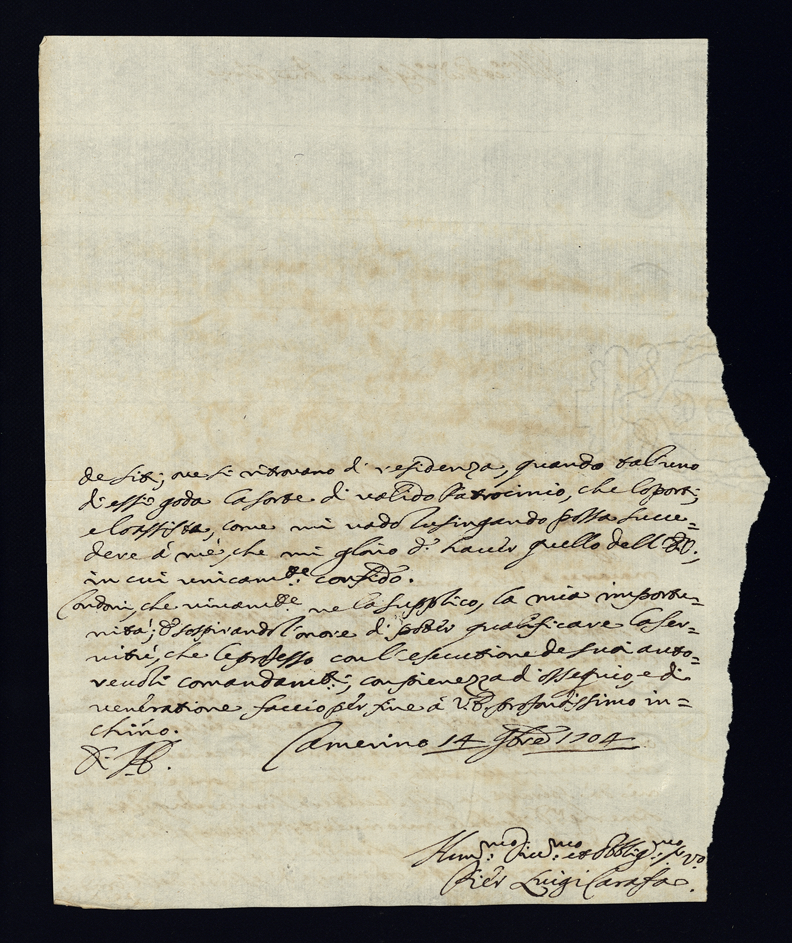 de siti, ove si ritrovano di residenza, quando tal'uno
di essi goda la sorte di valido Patrocinio, che lo porti,
e lo assista, come mi vado lusingando possa succe=
dere à mé, che mi glorio d' haver quello dell'
in cui unicam.te confido.
Condoni, che vivam.te ne la supplico, la mia importu=
nità; e sospirando l'onore di poter qualificare la ser=
vitù, che le professo con l'esecutione de suoi auto=
revoli comandam.ti, con pienezza d'ossequio, e di
veneratione faccio per fine à V.E. profondissimo in=
chino.
Camerino 14 9bre 1704
Hum.mo Div.mo et Obblig.mo S.vo
Pier Luigi Carafa.